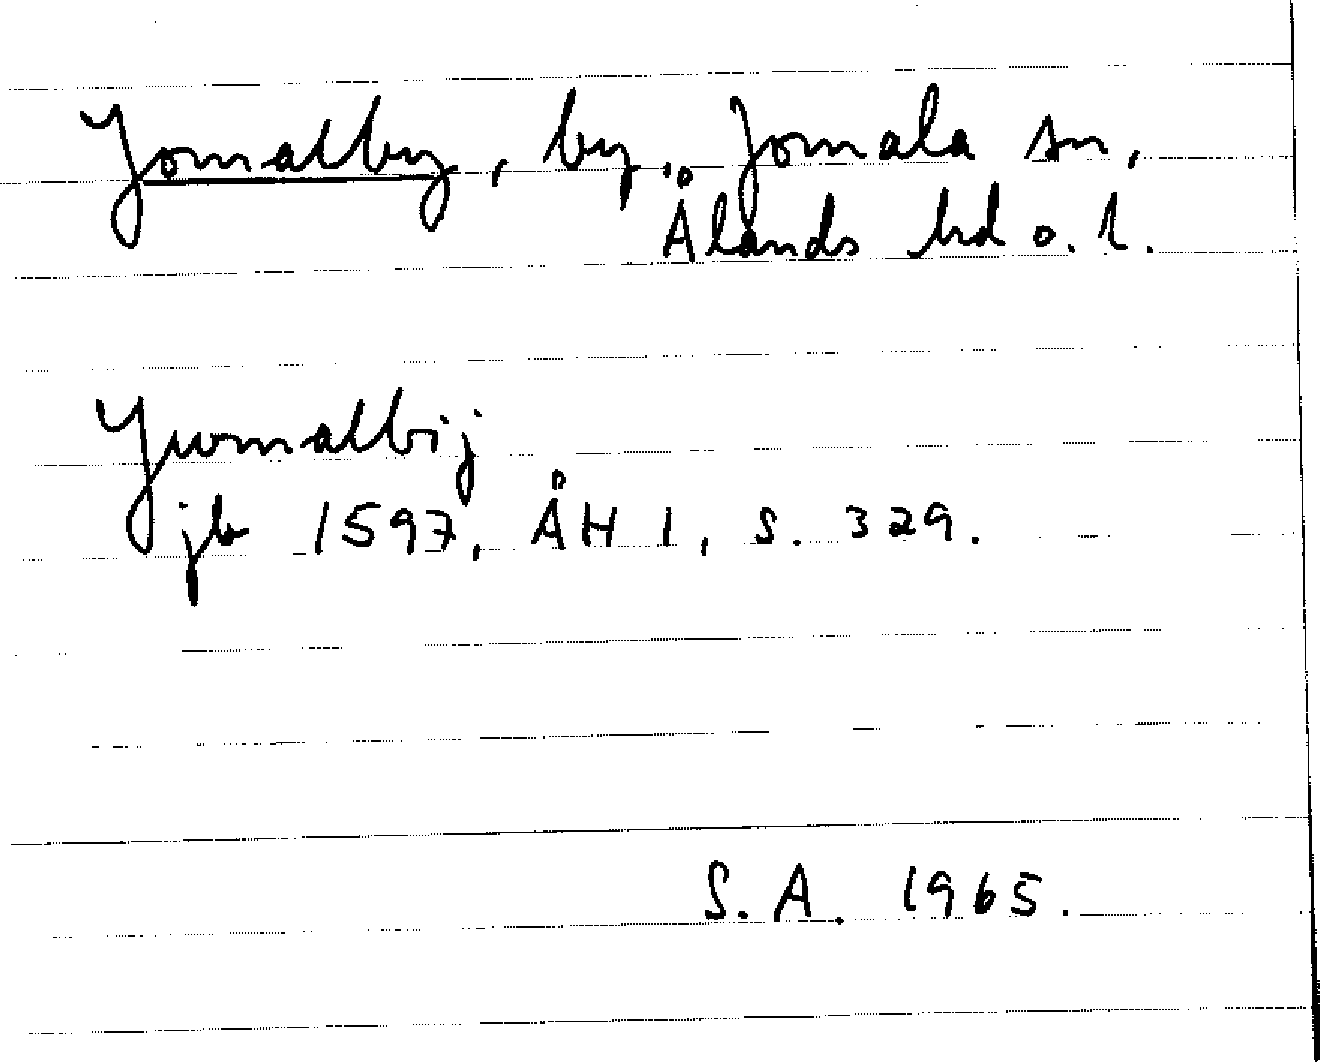 Jomalby, by, Jomala sn,
Ålands hd o. l.
Jwomalbij
jb 1597, ÅH 1, s. 329.
S. A. 1965.